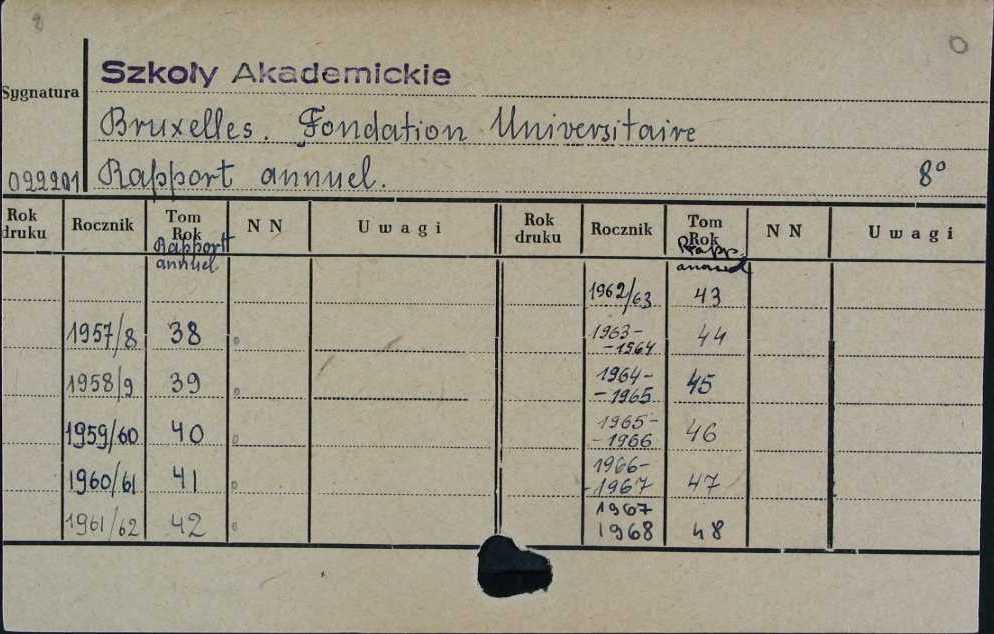 8
O
Szkoły Akademickie
Sygnatura
Bruxelles. Fondation Universitaire
022201 Rapport annuel. 8°
Rok druku Rocznik Tom Rok NN Uwagi Rok druku Rocznik Tom Rok NN Uwagi
Rapport annuel Rapp. annuel
1962/63 43
1957/8 38 1963- -1964 44
1958/9 39 1964- -1965 45
1959/60 40 1965- -1966 46
1960/61 41 1966- -1967 47
1961/62 42 1967 1968 48